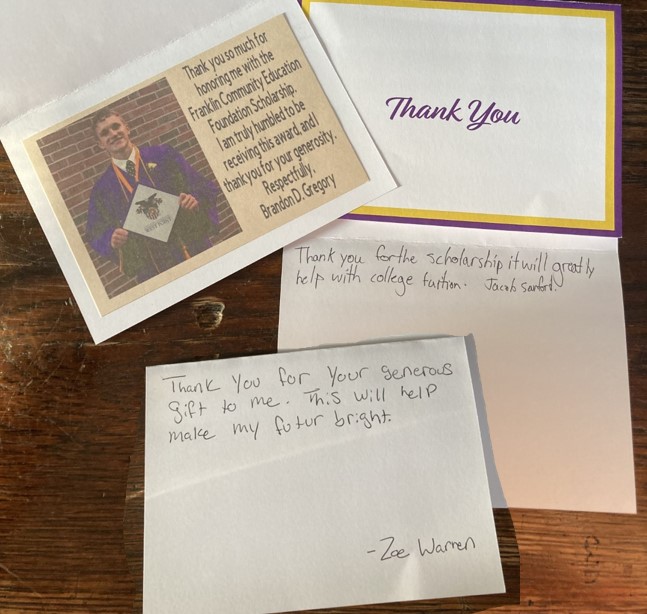 Thank you so much for
honoring me with the
Franklin Community Education
Foundation Scholarship.
I am truly humbled to be
receiving this award, and I
thank you for your generosity.
Respectfully,
Brandon D. Gregory
Thank You
Thank you for the scholarship it will greatly
help with college tuition. Jacob Sanford.
Thank you for your generous
gift to me. This will help
make my futur bright.
-Zoe Warren